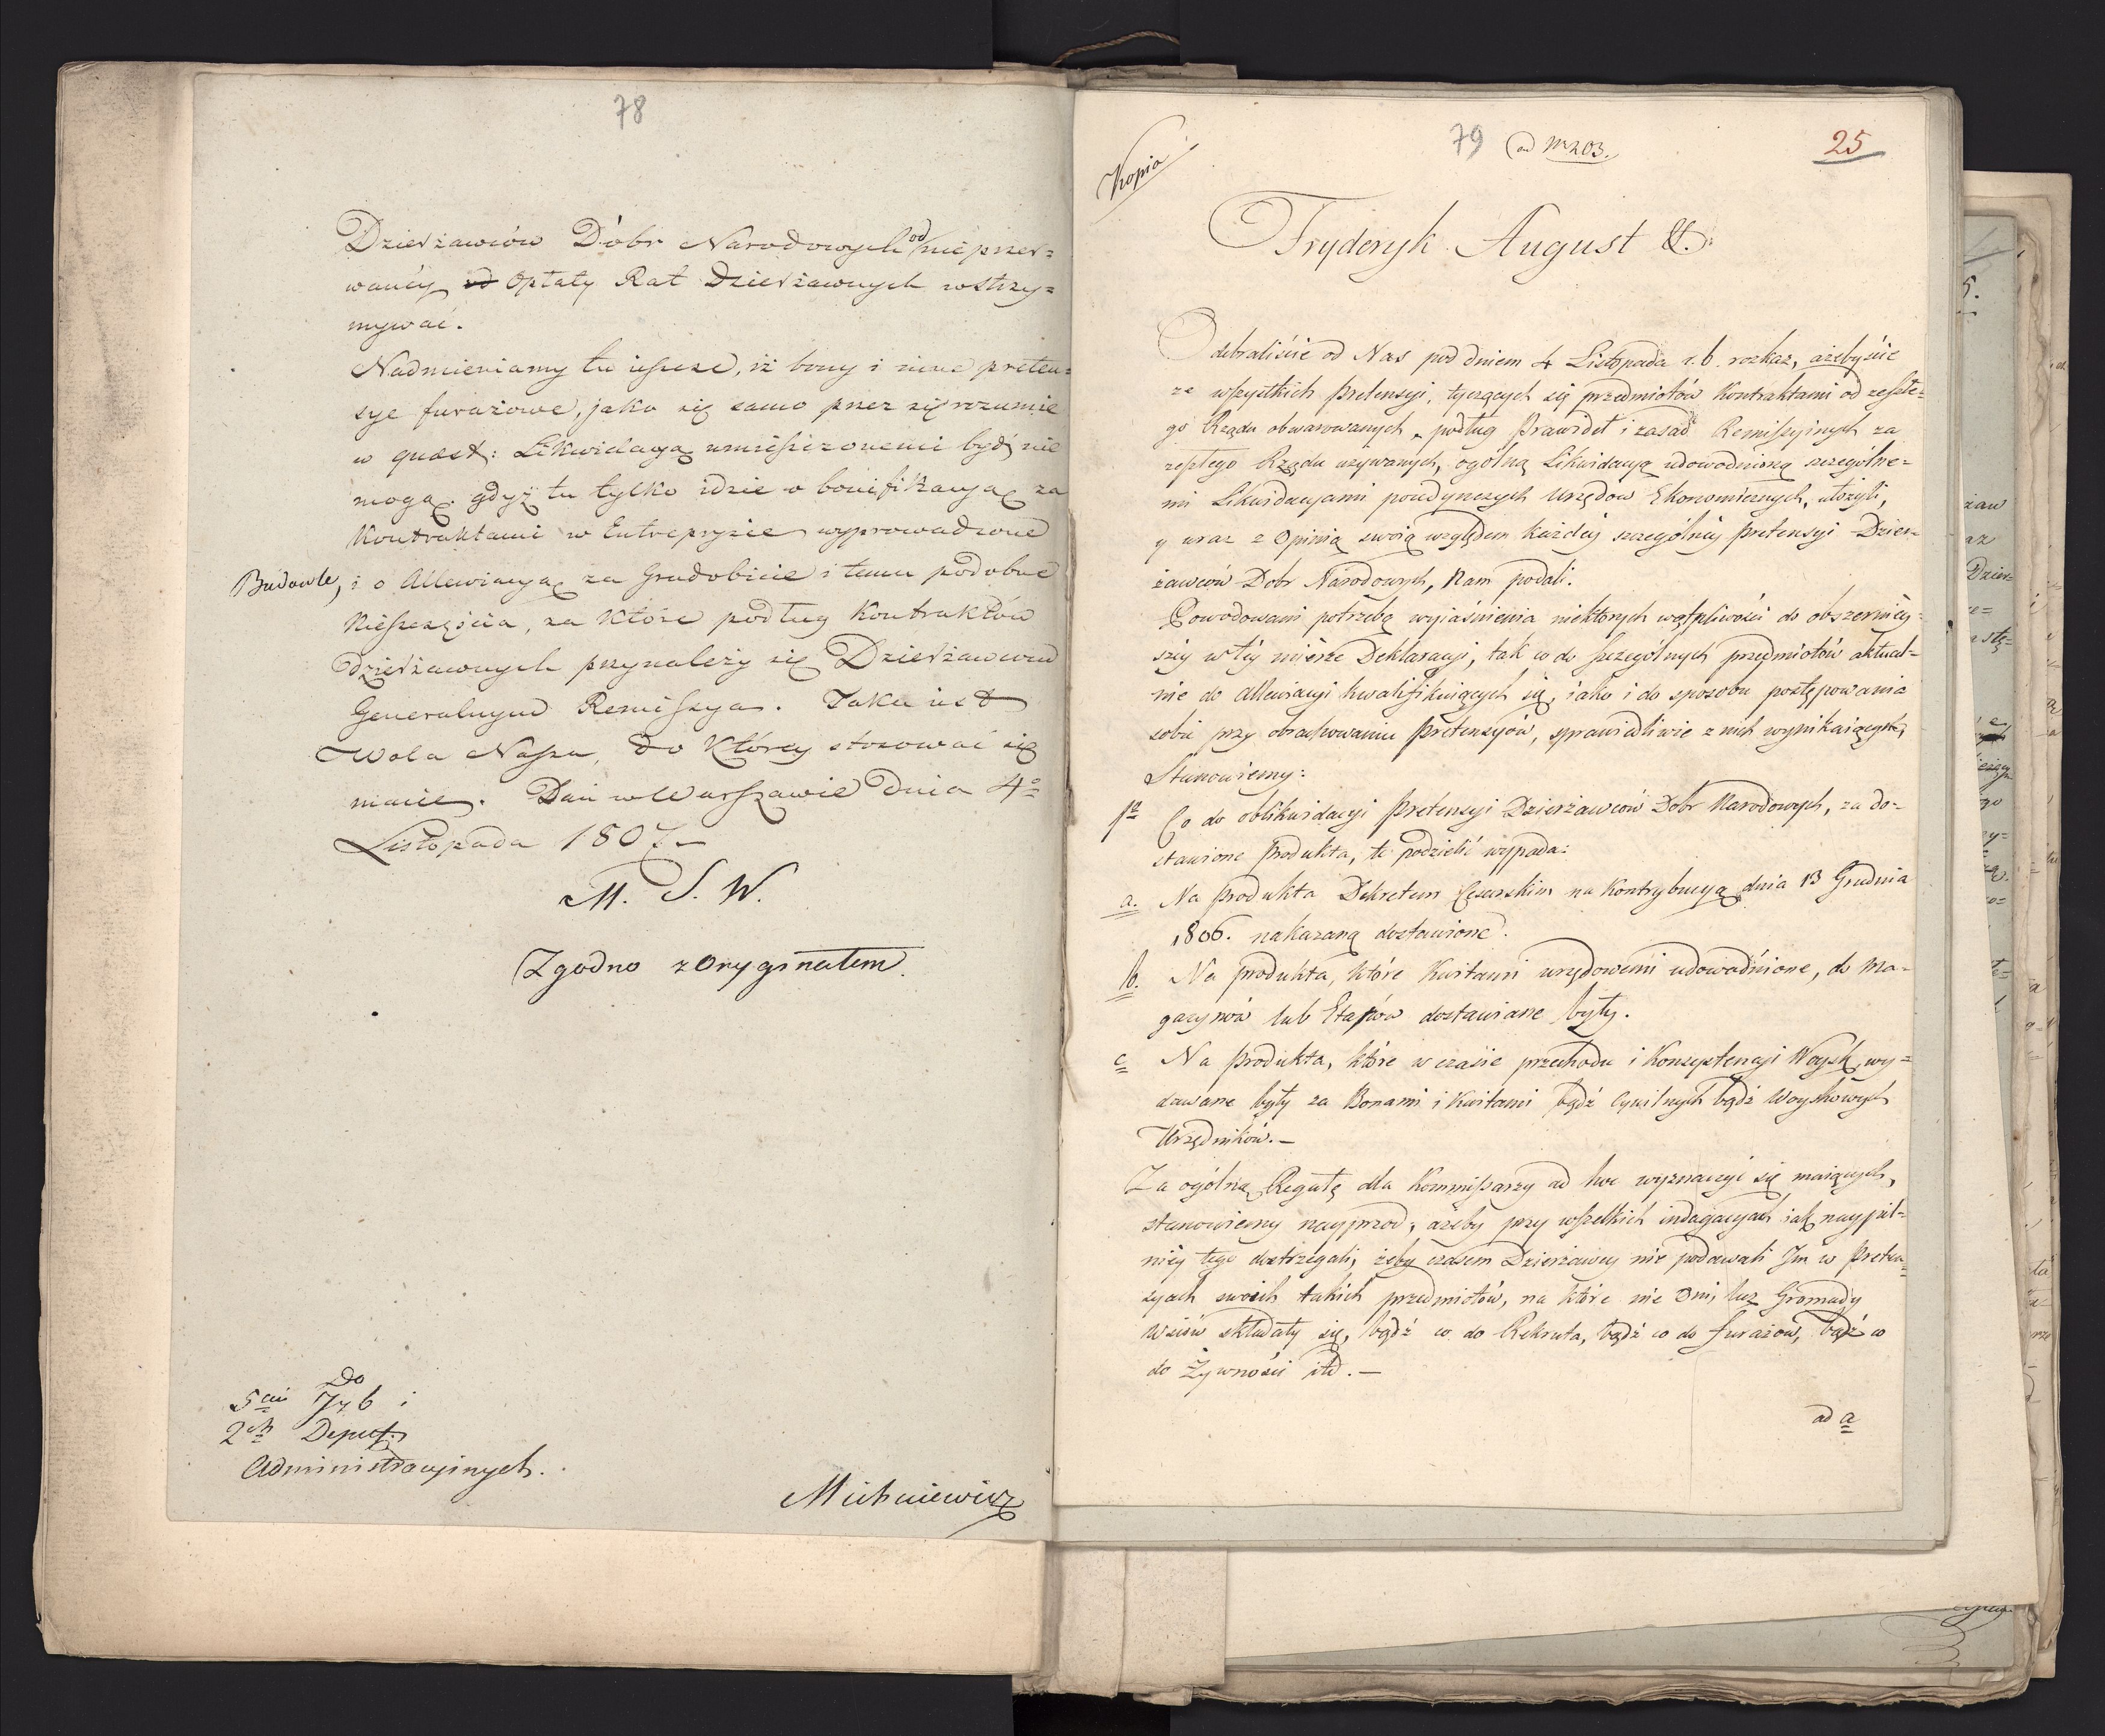 78
Dzierżawców Dóbr Narodowych od nieprzer=
waney od Opłaty Rat Dzierżawnych wstrzy=
mywać.
Nadmieniamy tu ieszcze, iż bony i inne preten=
sye furażowe, jako się samo przez się rozumie
w quaest: Likwidacyą umieszczonemi bydź nie
mogą, gdyż tu tylko idzie o bonifikacyą za
Kontraktami w Entrepryzie wyprowadzone
Budowle, i o Allewiacyą za Gradobicie i temu podobne
Nieszczęścia, za które podług Kontraktów
dzierżawnych przynależy się Dzierżawcom
Generalnym Remissya. Taka iest
Wola Nasza, do którey stosować się
macie. Dan w Warszawie Dnia 4º
Listopada 1807.
M. S. W.
Zgodno z Oryginałem.
Do
5ciu Izb i
2ch Deput:
Administracyinych.
Michniewicz
Kopia
79 ad Nr 203.
25
Fryderyk August &.:
Odebraliście od Nas pod dniem 4 Listopada r. b. rozkaz, ażebyście
ze wszystkich Pretensyi, tyczących się przedmiotów Kontraktami od zeszłe=
go Rządu obwarowanych, podług Prawideł i zasad Remissyinych za
zeszłego Rządu używanych, ogólną Likwidacyą udowodnioną szczególne=
mi Likwidacyami poiedynczych Urzędów Ekonomicznych, ułożyli,
y wraz z Opinią swoią względem każdey szczególney Pretensyi Dzier=
żawców Dobr Narodowych, Nam podali.
Powodowani potrzebą wyiaśnienia niektorych wątpliwości do obszerniey=
szey w tey mierze Deklaracyi, tak co do szczególnych przedmiotów aktual=
nie do allewiacyi kwalifikuiących się, iako i do sposobu postępowania
sobie przy obrachowaniu Pretensyów, sprawiedliwie z nich wynikaiących,
Stanowiemy:
1º Co do oblikwidacyi Pretensyi Dzierżawców Dobr Narodowych, za do=
stawione Produkta, te podzielić wypada:
a. Na Produkta Dekretem Cesarskim na Kontrybucyą dnia 13 Grudnia
1806. nakazaną dostawione.
b. Na produkta, które Kwitami urzędowemi udowodnione, do Ma=
gazynów lub Etapów dostawiane były.
c Na Produkta, które w czasie przechodu i Konsystencyi Woysk, wy=
dawane były za Bonami i Kwitami bądź Cywilnych bądź Woyskowych
Urzędników.—
Za ogólną Regułę dla Kommissarzy ad hoc wyznaczyć się maiących,
stanowiemy nayprzod, ażeby przy wszelkich indagacyach iak naypil=
niey tego dostrzegali, żeby czasem Dzierżawcy nie podawali Im w Preten=
syach swoich takich przedmiotów, na które nie Oni, lecz Gromady
Wsiów składały się, bądź co do Rekruta, bądź co do furażów, bądź co
do Żywności itd.—
ad a